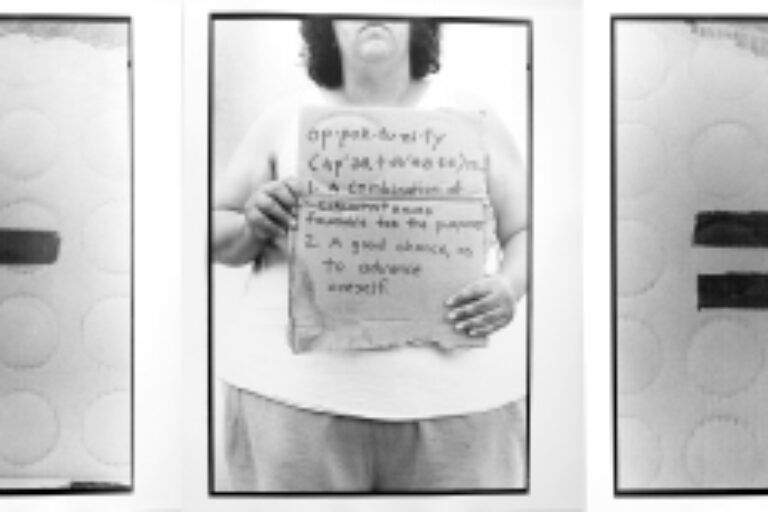 op·por·tu·ni·ty
1. A combination of
circumstances
favorable for the purpose
2. A good chance, as
to advance
oneself.